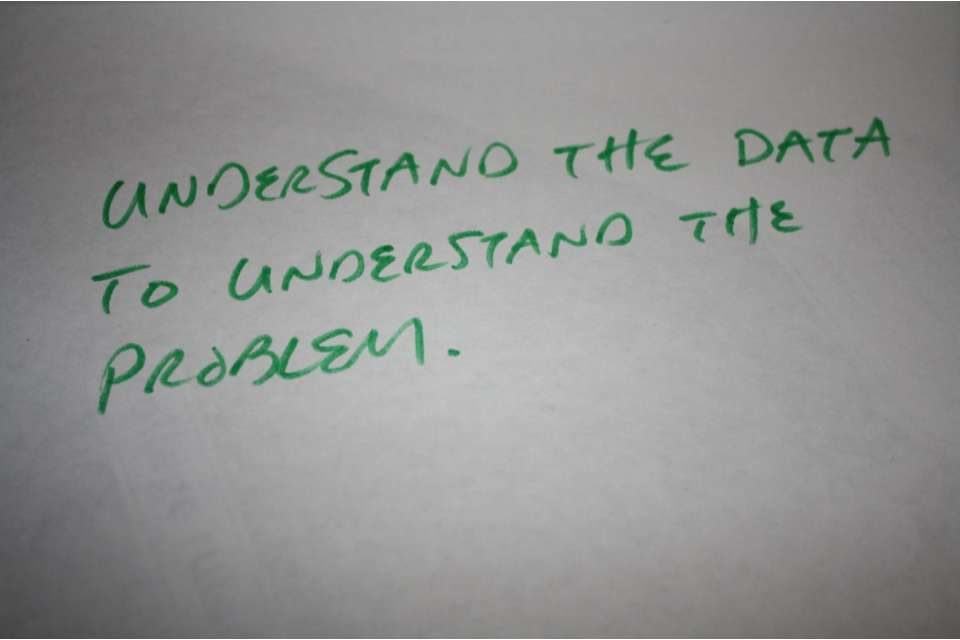 UNDERSTAND THE DATA
TO UNDERSTAND THE
PROBLEM.